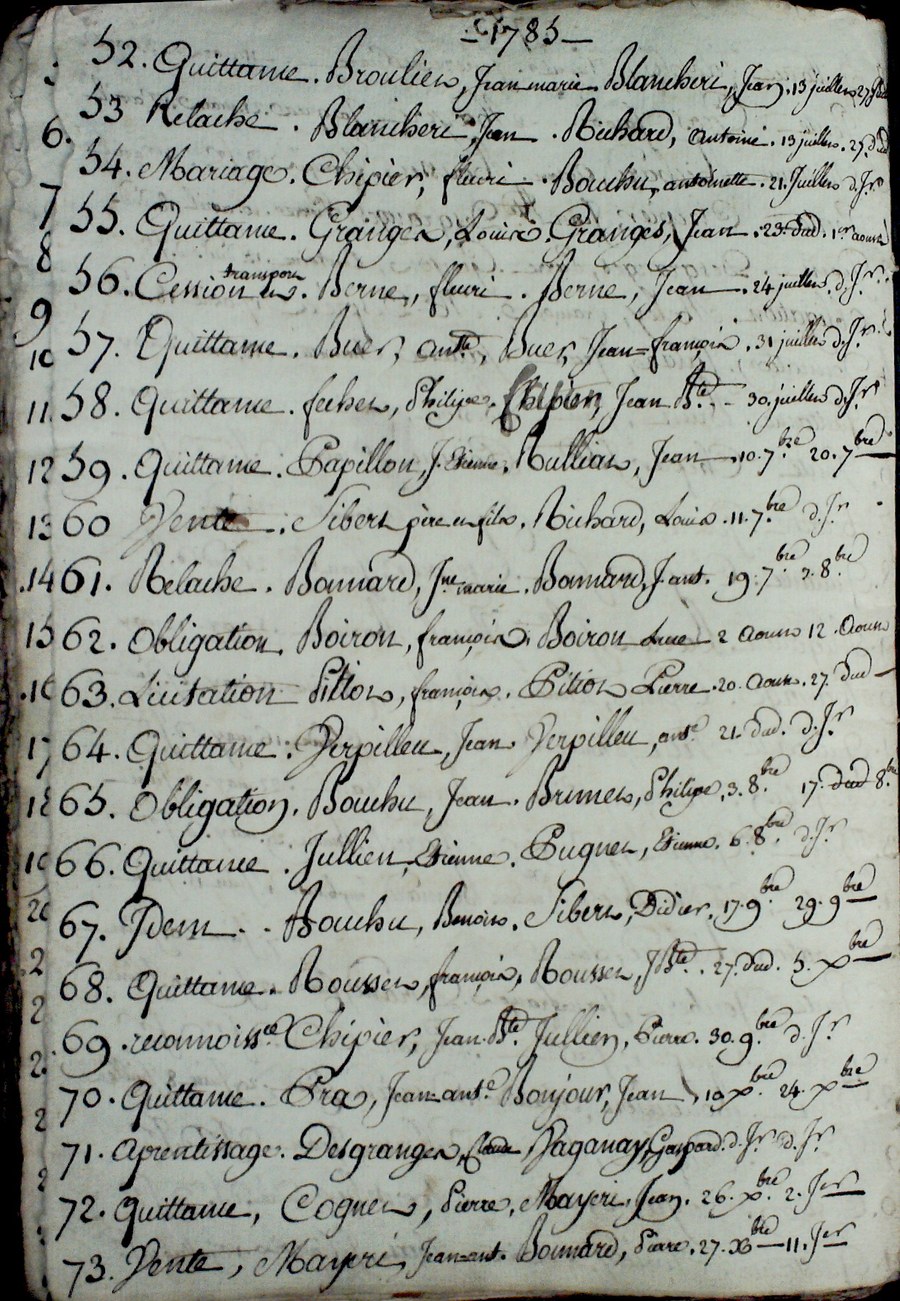 -1785-
52. Quittance. Broulier, Jean marie Blancheri, Jean. 13 juillet 27
53 Relache. Blancheri, Jean. Richard, antoine. 13 juillet. 27. d
54. Mariage. Chipier, fleuri. Bouchu, antoinette. 21. Juillet d. Jr
55. Quittance. Granger, Louis. Granges, Jean. 23. dud. 1er aoust
56. Cession et transport. Berne, fleuri. Berne, Jean. 24 juillet. d. Jr.
57. Quittance. Buer, ante, Buer, Jean-françois. 31 juillet d. Jr.
58. Quittance. fechet, Philipe. Chipier, Jean Bte. - 30. juillet d. Jr
59. Quittance. Papillon, J. Etienne. Rullias, Jean. 10. 7bre 20. 7bre
60 Vente. Sibert père et fils. Richard, Louis. 11. 7bre d. Jr
61. Relache. Bonnard, Jne marie. Bonnard, J. ant. 19. 7bre 2. 8bre
62. Obligation. Boiron, françois, Boiron 2 aoust 12. aoust
63. Licitation Pitiot, françois. Pitiot Pierre. 20. aoust. 27. dud
64. Quittance. Verpilleu, Jean. Verpilleu, ante 21. dud. d. Jr
65. Obligation. Bouchu, Jean. Brunet, Philipe, 3. 8bre 17. dud 8.bre
66. Quittance. Jullien, Etienne. Pugnet, Etienne. 6. 8bre d. Jr
67. Idem.. Bouchu, Benoit. Sibert, Didier. 17. 9bre 29. 9bre
68. Quittance. Rousset, françois. Rousset, J. Bte. 27. dud. 5. xbre
69. reconnoissce Chipier, Jean Bte Jullien, Pierre. 30. 9bre d. Jr
70. Quittance. Pra, Jean ante. Bonjour, Jean, 19. xbre 24. xbre
71. aprentissage. Desgranges, Claude, Paganay, Gaspard. d. Jr d. Jr
72. Quittance, Cognet, Pierre. Mayeri Jean. 26. xbre 2. Jer
73. Vente, Mayeri, Jean ant. Bonnard, Pierre. 27. xbre 11. Jer